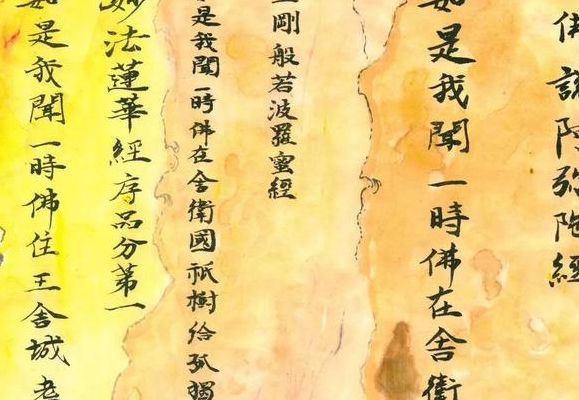 佛說阿弥陀經
如是我聞一時佛在舍衛
剛般若波羅蜜經
是我聞一時佛在舍衛國祇樹給孤獨
妙法蓮華經序品分第一
如是我聞一時佛住王舍城